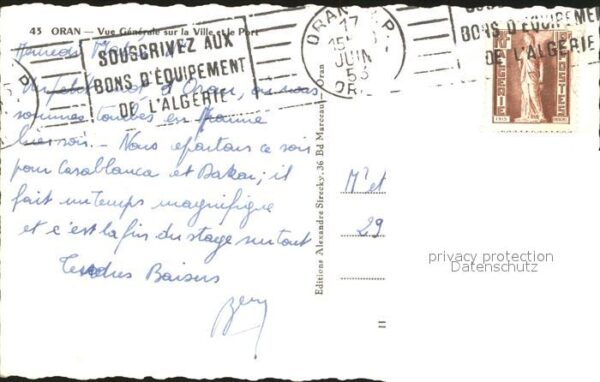 45 ORAN — Vue Générale sur la Ville et le Port
SOUSCRIVEZ AUX
BONS D'ÉQUIPEMENT
DE L'ALGÉRIE
ORAN R.P
17
15
JUIN
53
OR
SOUSCRIVEZ AUX
BONS D'ÉQUIPEMEN
DE L'ALGÉRIE
ALGERIE
POSTES
Un petit mot d'Oran, où nous
sommes tombés en panne
hier soir. - Nous repartons ce soir
pour Casablanca et Dakar; il
fait un temps magnifique
et c'est la fin du stage surtout
Tendres Baisers
Editions Alexandre Sirecky, 36 Bd Marceau - Oran
Mr et
29
privacy protection
Datenschutz